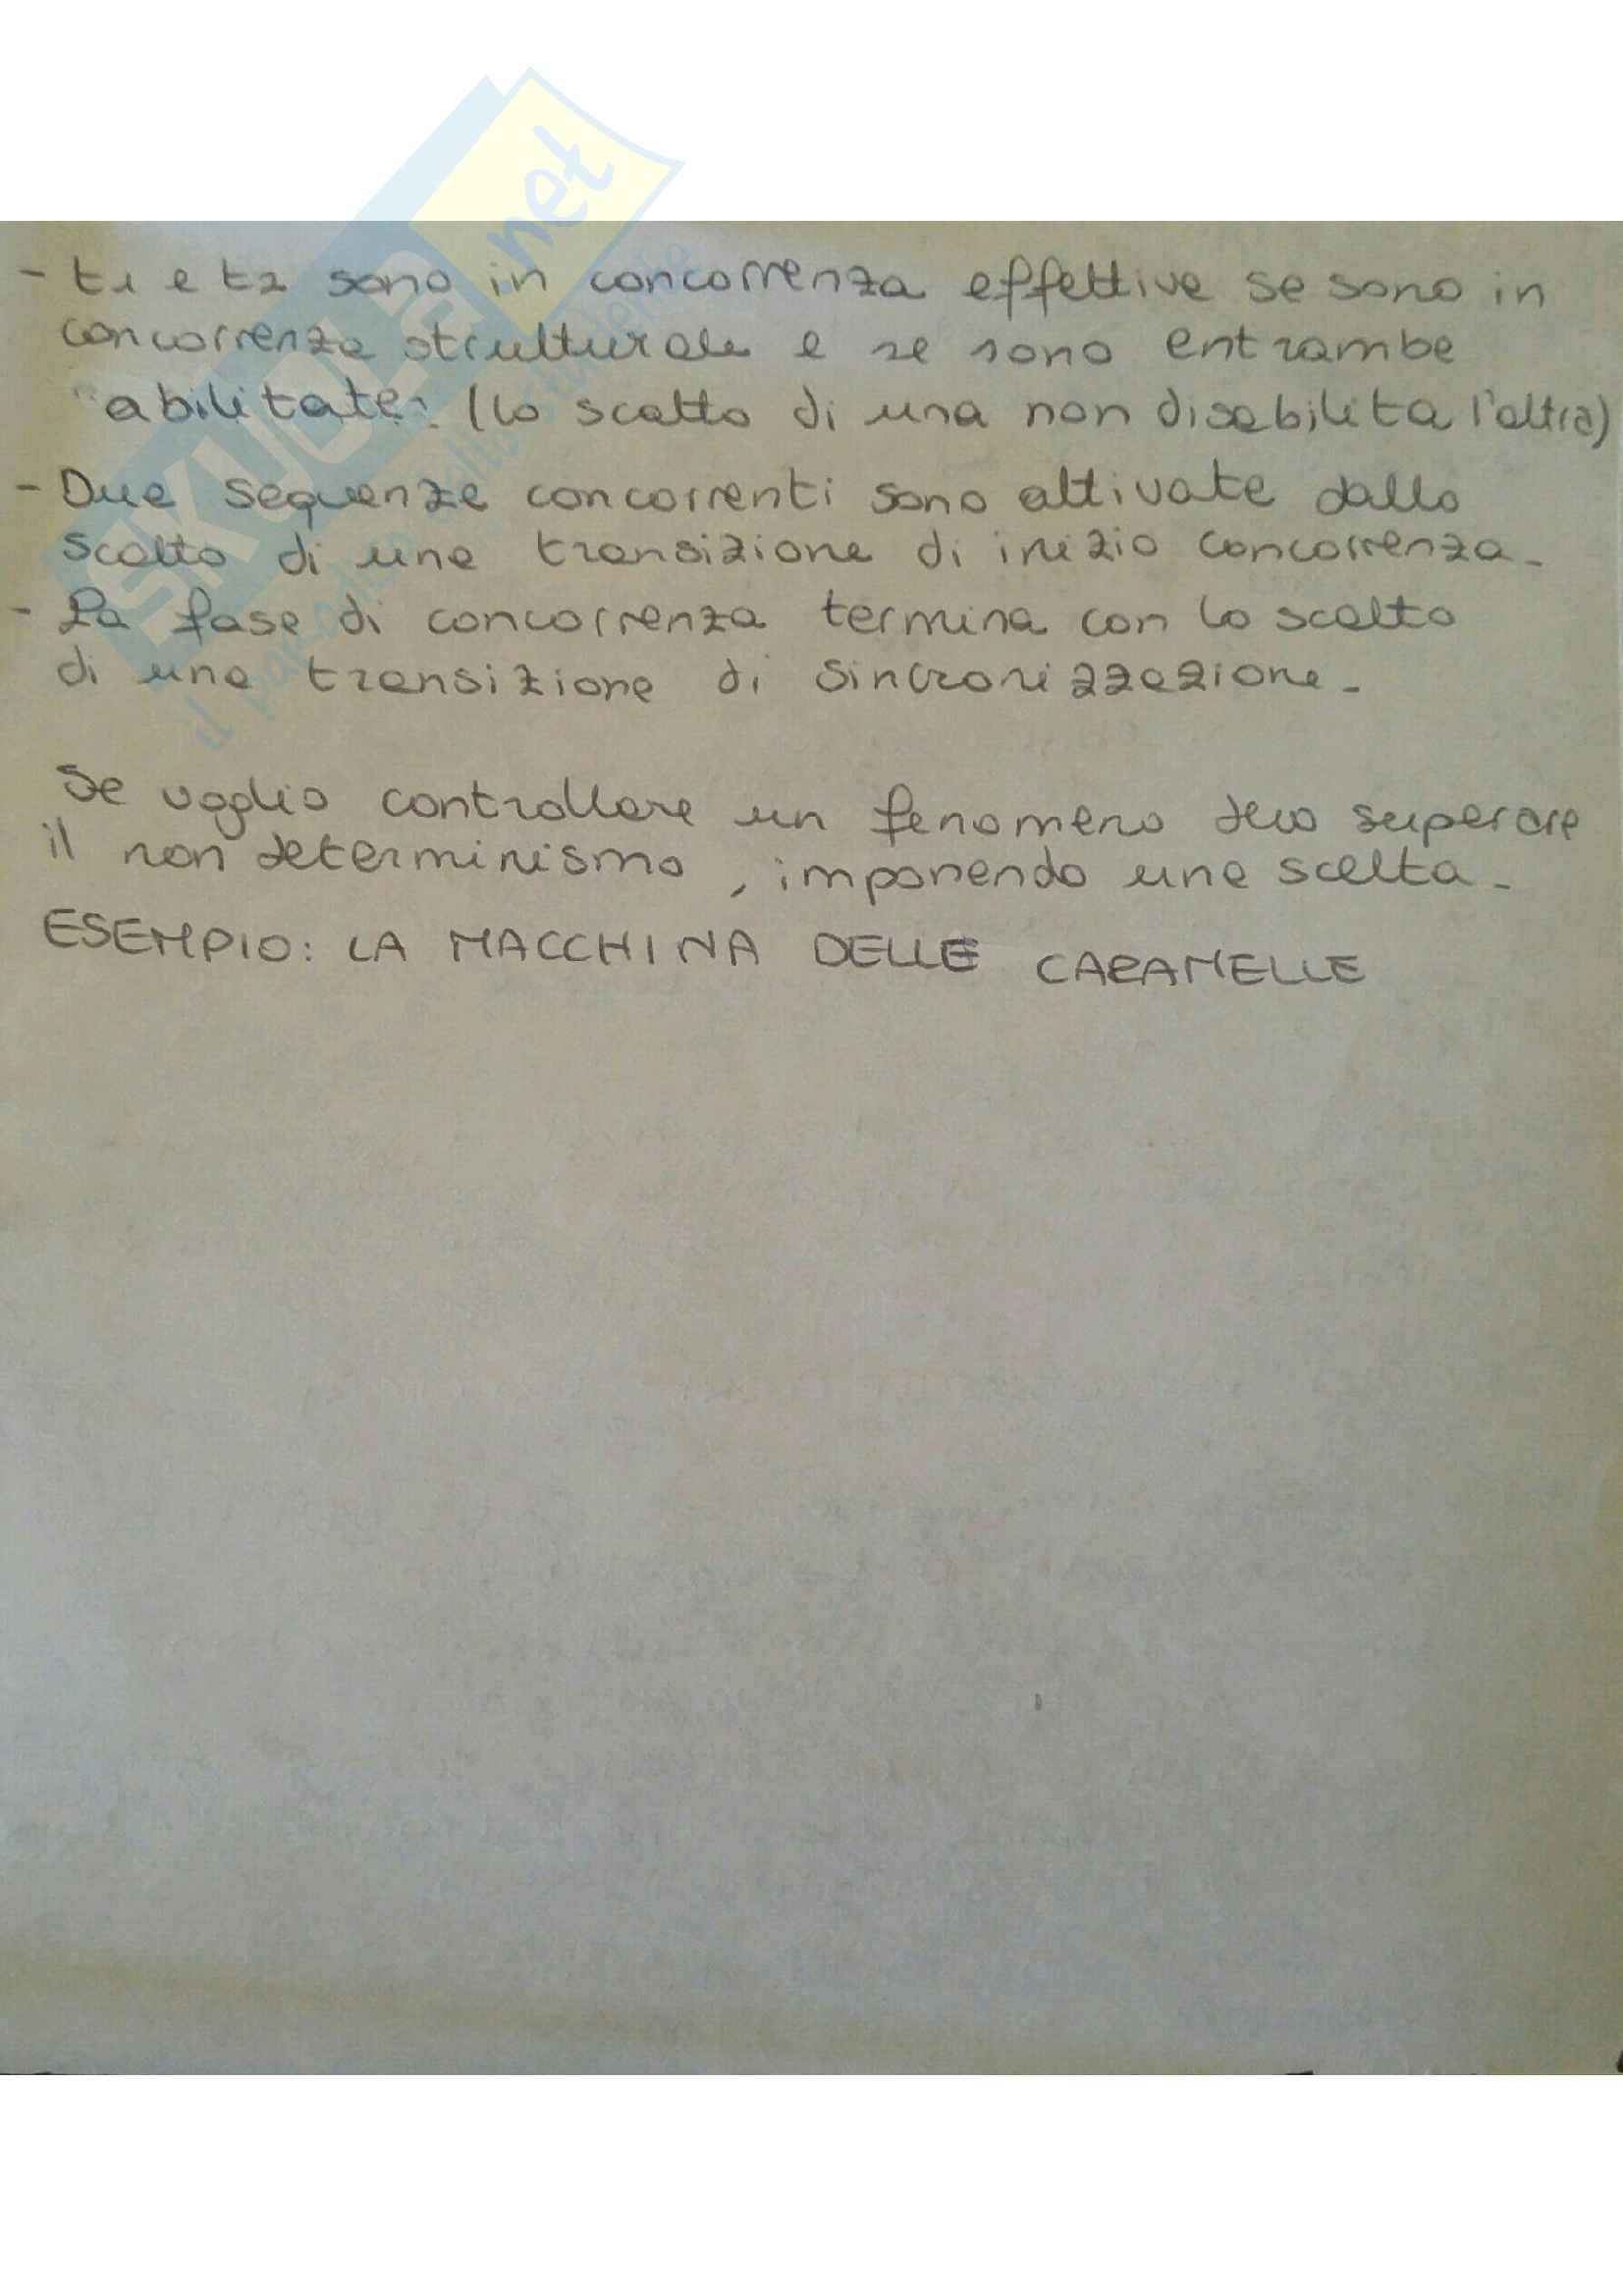 - t1 e t2 sono in concorrenza effettiva se sono in
concorrenza strutturale e se sono entrambe
abilitate. (lo scatto di una non disabilita l'altra)
- Due sequenze concorrenti sono attivate dallo
scatto di una transizione di inizio concorrenza.
- La fase di concorrenza termina con lo scatto
di una transizione di sincronizzazione.
Se voglio controllare un fenomeno devo superare
il non determinismo, imponendo una scelta.
ESEMPIO: LA MACCHINA DELLE CARAMELLE
SKUOLA.net